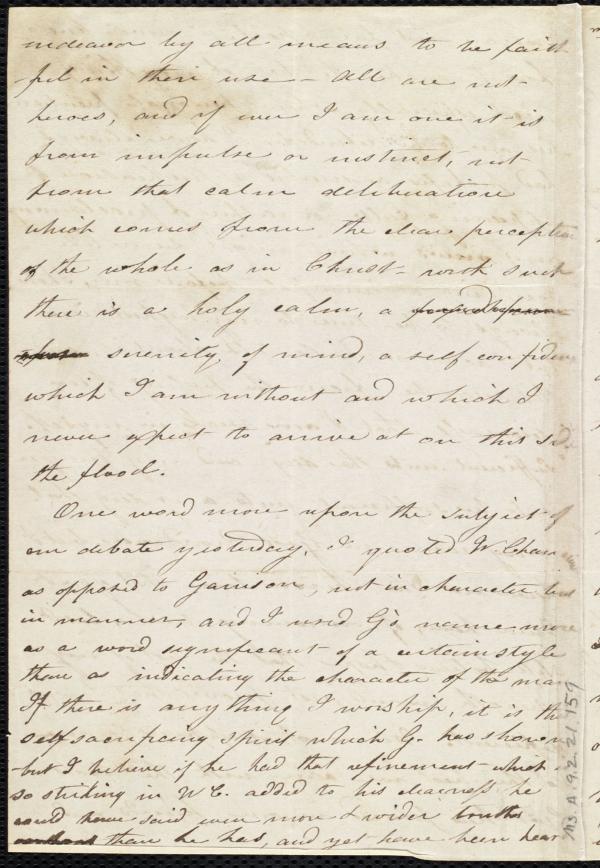 endeavor by all means to be faith
ful in their use - All are not
heroes, and if ever I am one it is
from impulse or instinct, not
from that calm deliberation
which comes from the clear perception
of the whole as in Christ - with such
there is a holy calm, a
serenity of mind, a self confidence
which I am without and which I
never expect to arrive at on this side
the flood.
One word more upon the subject of
our debate yesterday. I quoted W. Channing
as opposed to Garrison, not in character but
in manner, and I used G's name more
as a word significant of a certain style
than as indicating the character of the man
If there is anything I worship, it is the
self sacrificing spirit which G. has shown
but I believe if he had that refinement which is
so striking in W C. added to his clearness he
would have said even more & wider truths
than he has, and yet have been hear
Ms. A. 9. 2. 21. 159